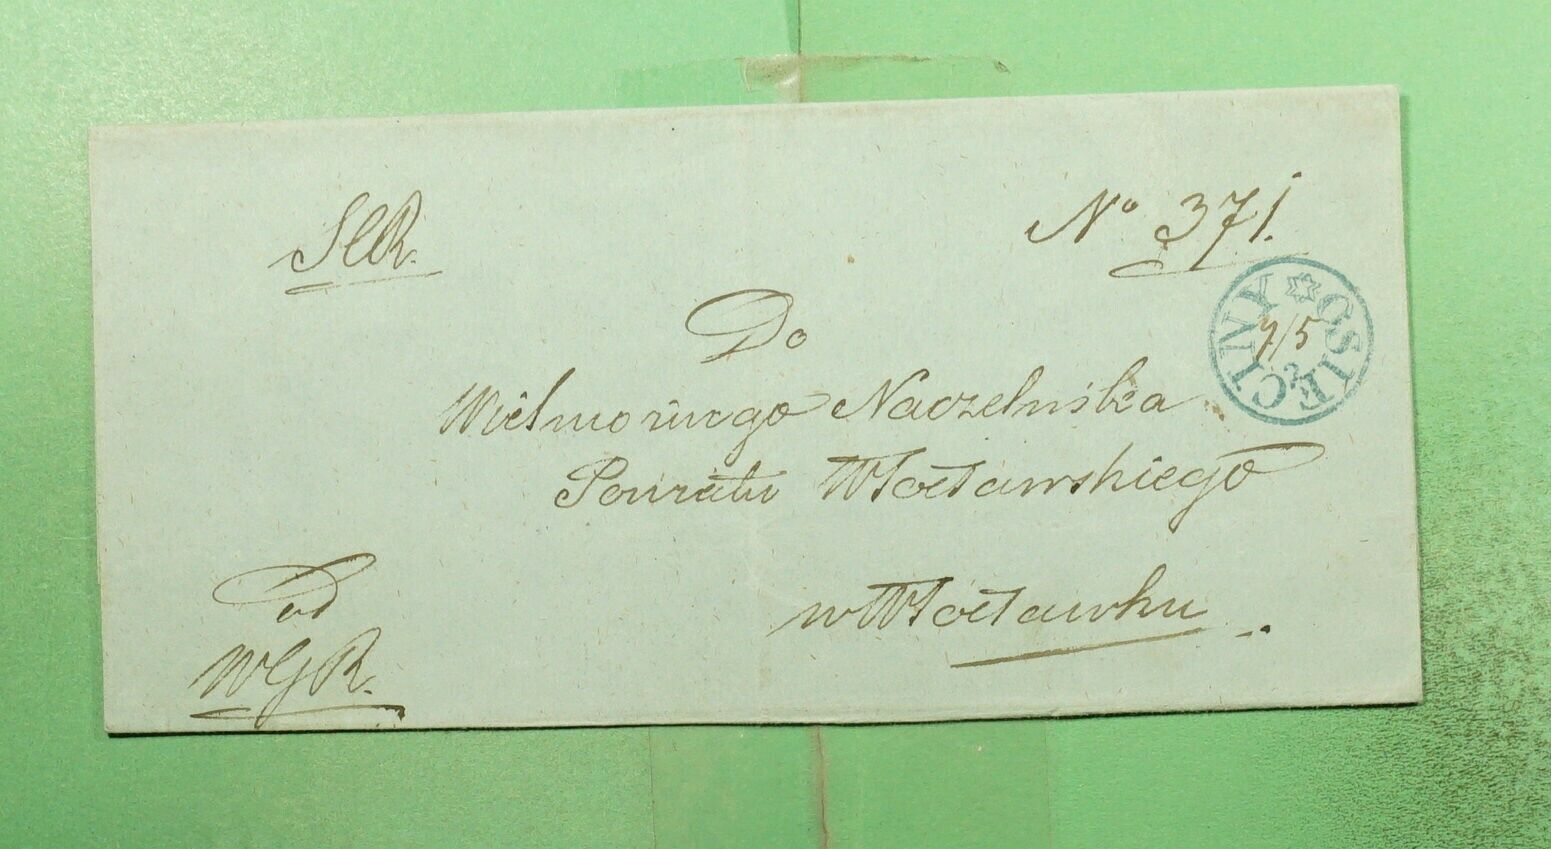 SCR.
No 371.
OSIĘCINY
7/5
Do
Wielmożnego Naczelnika
Powiatu Włocławskiego
w Włocławku
od
WGR.